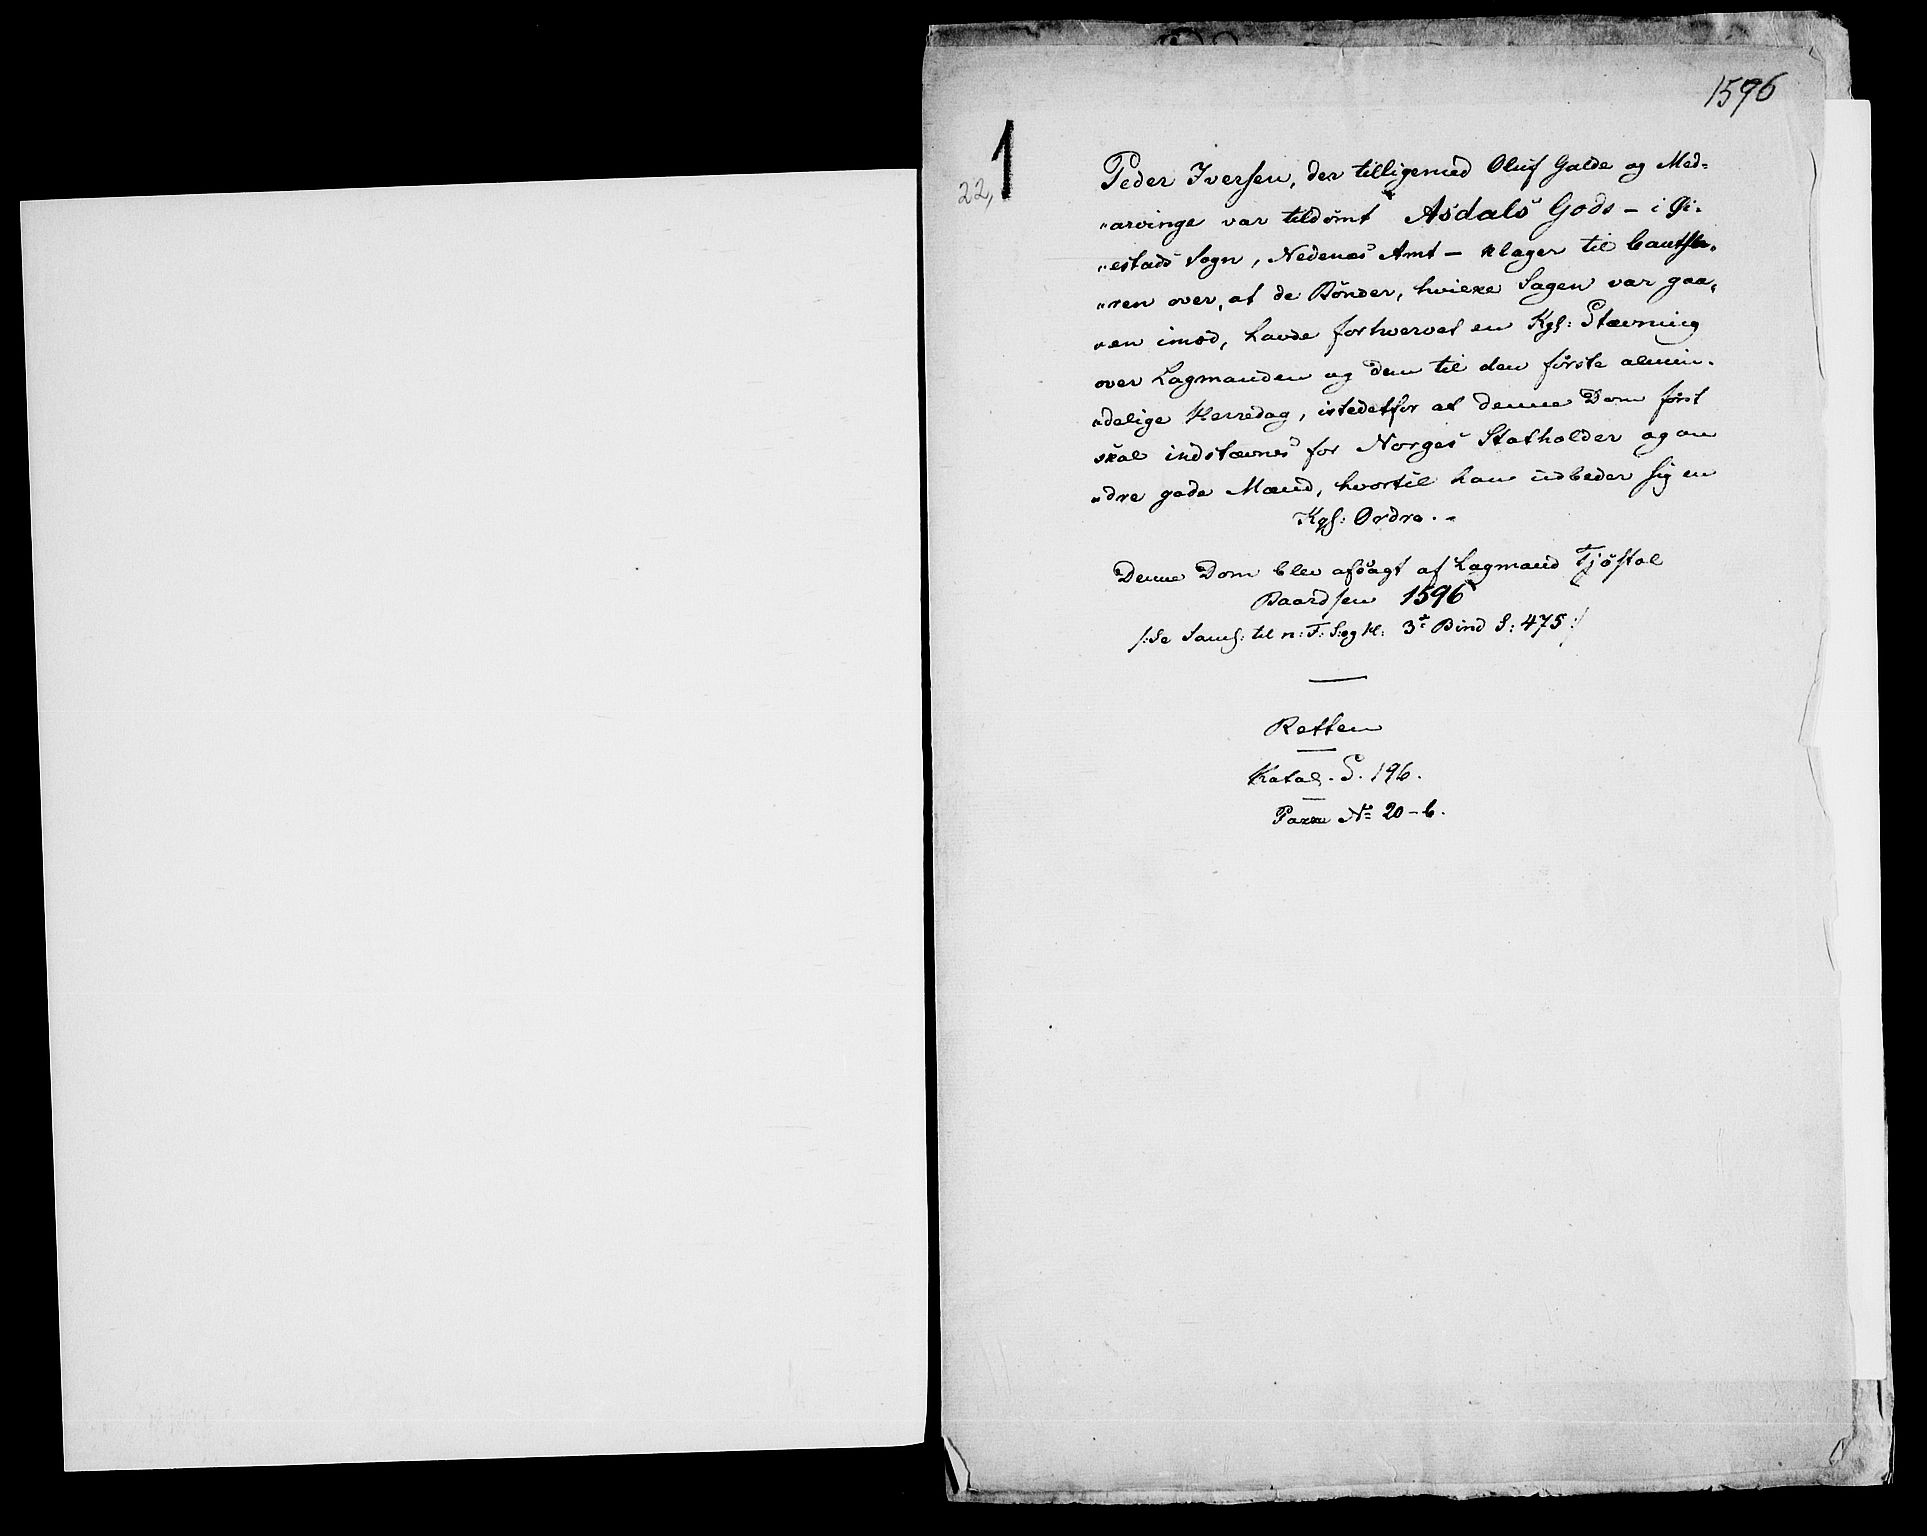 1596
1
22,
Peder Iversen, der tilligemed Oluf Galde og Med-
„arvinge var tildømt Asdals Gods – i Gi-
„estads Sogn, Nedenæs Amt – klager til Cantsle-
„ren over, at de Bønder, hvilke Sagen var gaa-
„en imod, havde forhvervet en Kgl: Stævning
over Lagmanden og dem til den første almin-
„delige Herredag, istedetfor at denne Dom først
skal indstævnes for Norges Statholder og an
„dre gode Mænd, hvortil han udbeder sig en
Kgl: Ordre. –
Denne Dom blev afsagt af Lagmand Tjøstol
Baardsen 1596
/: Se Saml: til n: F: S: og H: 3e Bind S: 475 :/
Retten
Katal. S. 196.
Pakke No 20-b.